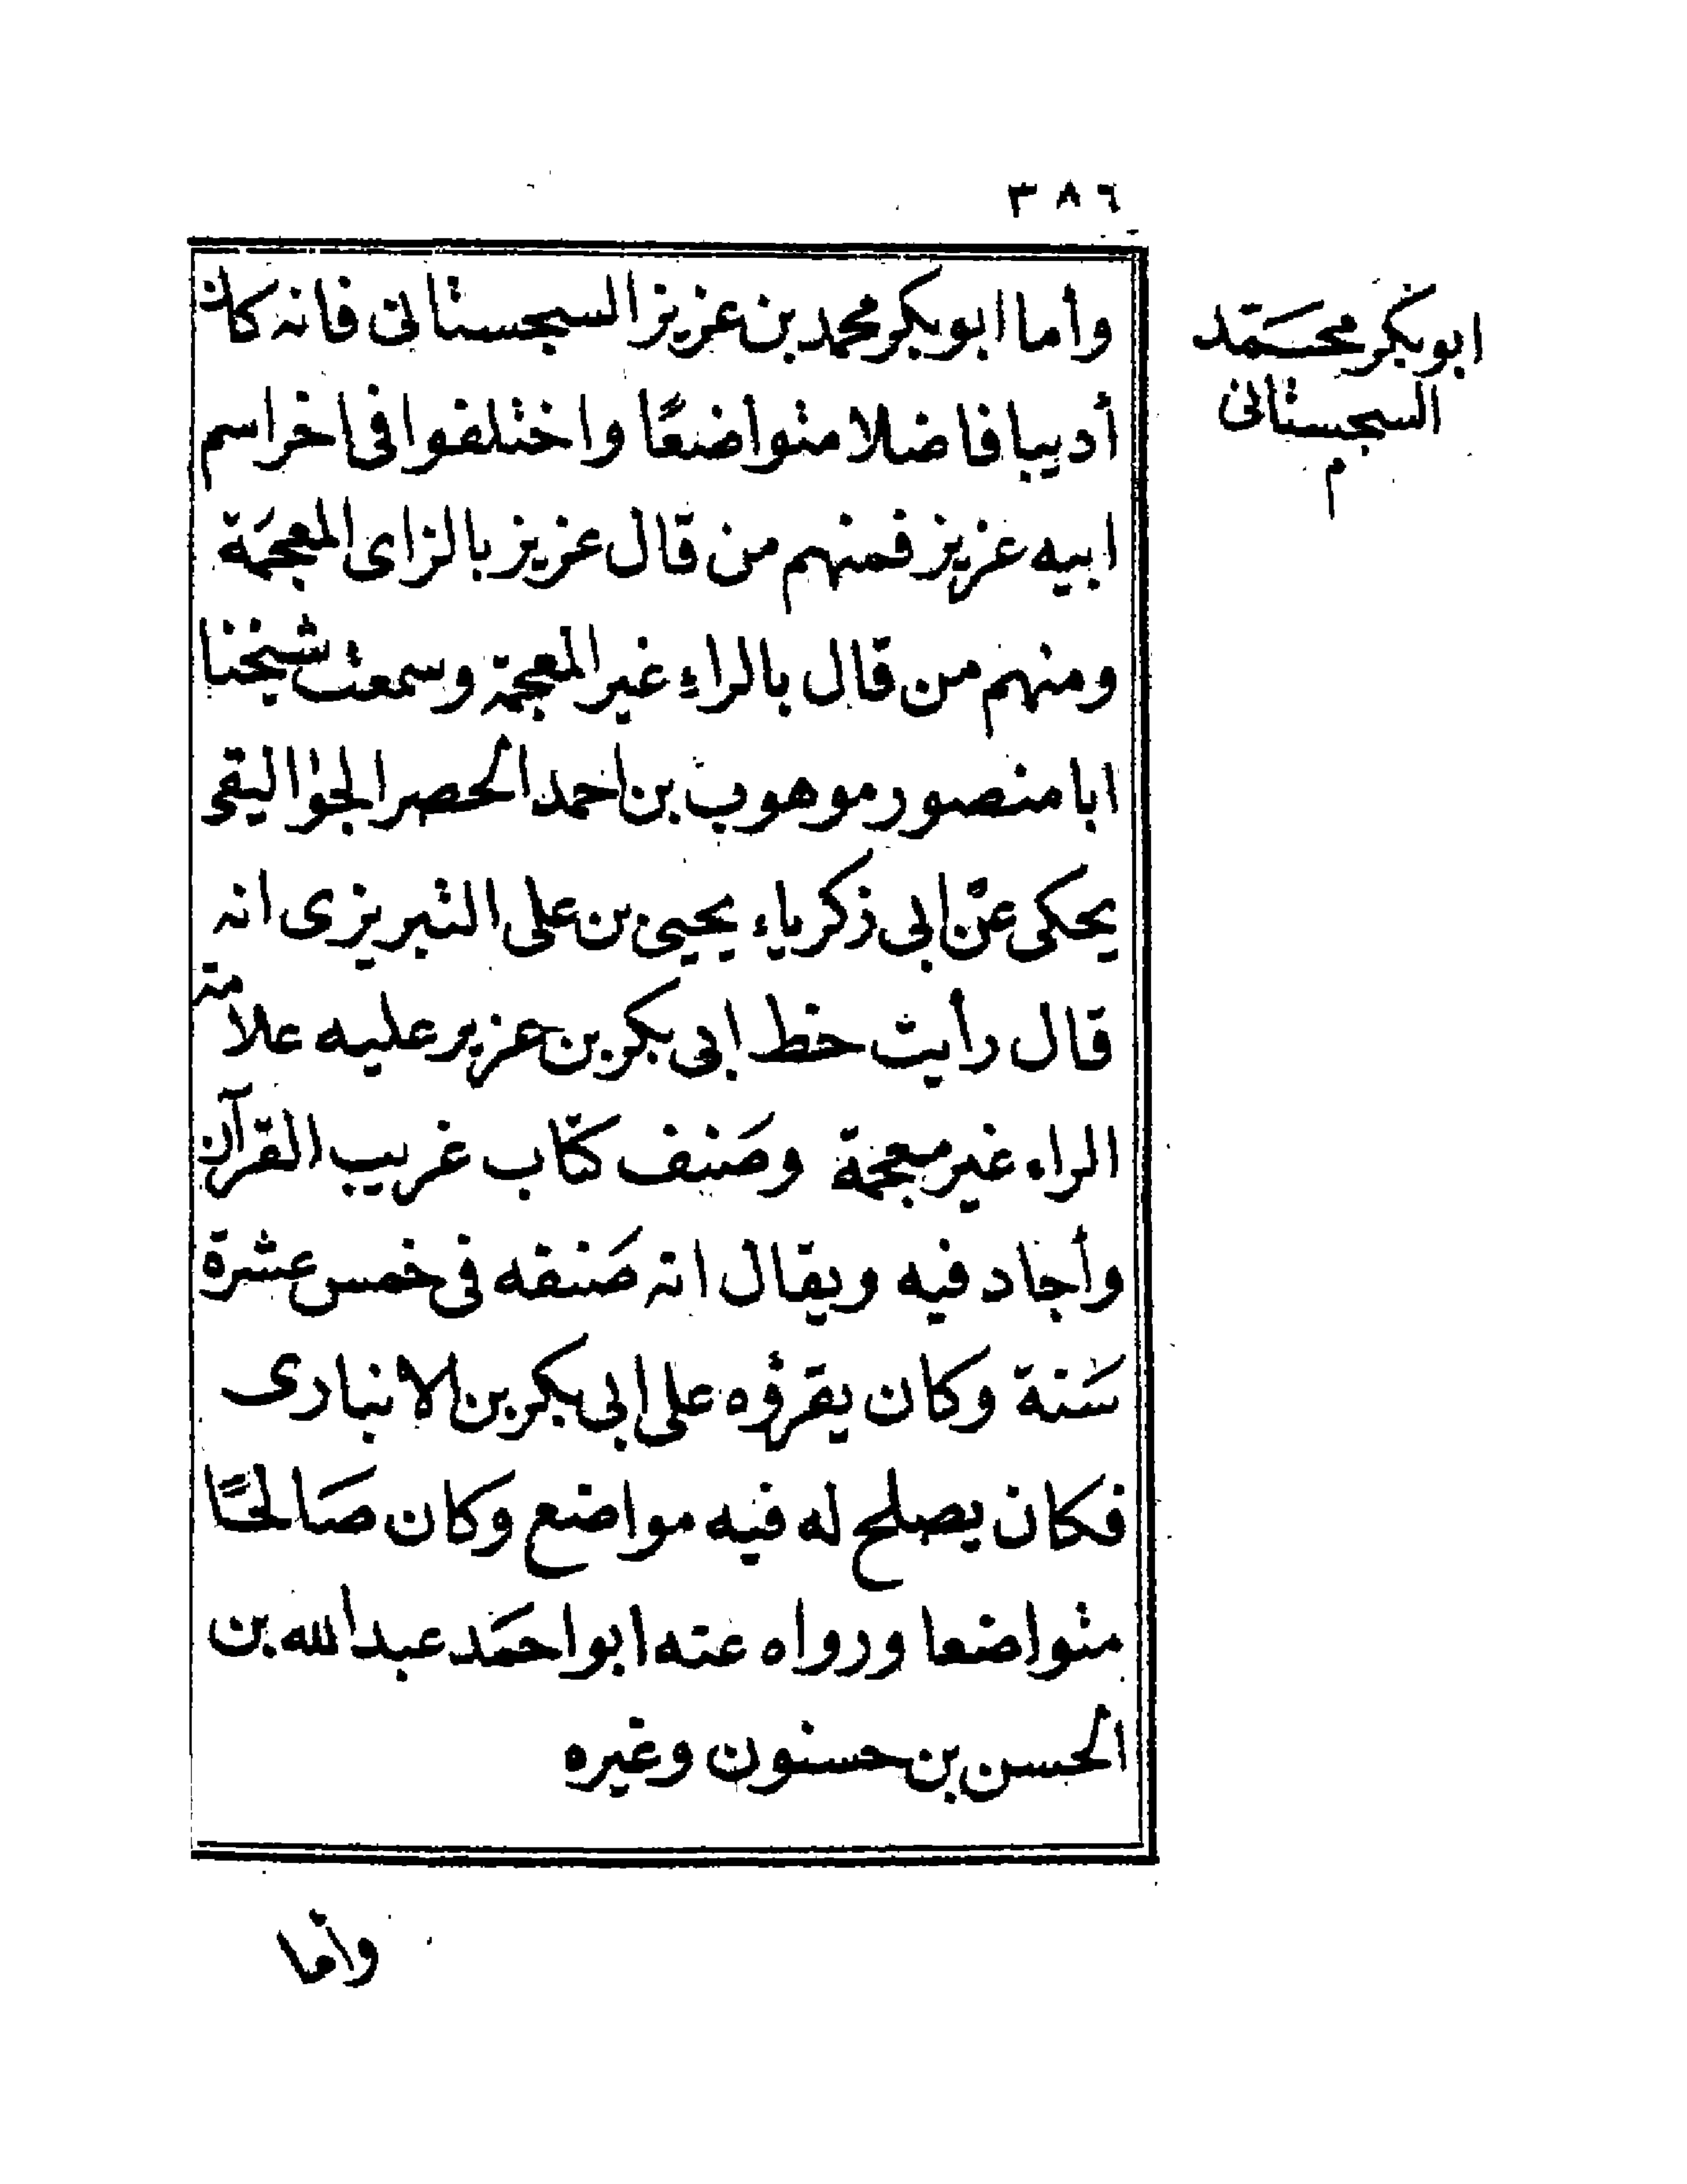 ٣٨٦
ابو بكر محمّد
السجستانى
م
وأما ابو بكر محمد بن عزيز السجستانى فانه كان
أديبا فاضلا متواضعًا واختلفوا فى اخر اسم
ابيه عزيز فمنهم من قال عزيز بالزاى المعجمة
ومنهم من قال بالراء غير المعجمة وسمعت شيخنا
ابا منصور موهوب بن احمد الحضر الجواليقى
يحكى عن ابى زكرياء يحيى بن على التبريزى انه
قال رأيت خط ابى بكر بن عزير عليه علامة
الراء غير معجمة وصنف كتاب غريب القرآن
وأجاد فيه ويقال انه صنفه فى خمس عشرة
سنة وكان يقرؤه على ابى بكر بن الانبارى
فكان يصلح له فيه مواضع وكان صالحًا
متواضعا ورواه عنه ابو احمد عبد الله بن
الحسن بن حسنون وغيره
وأما